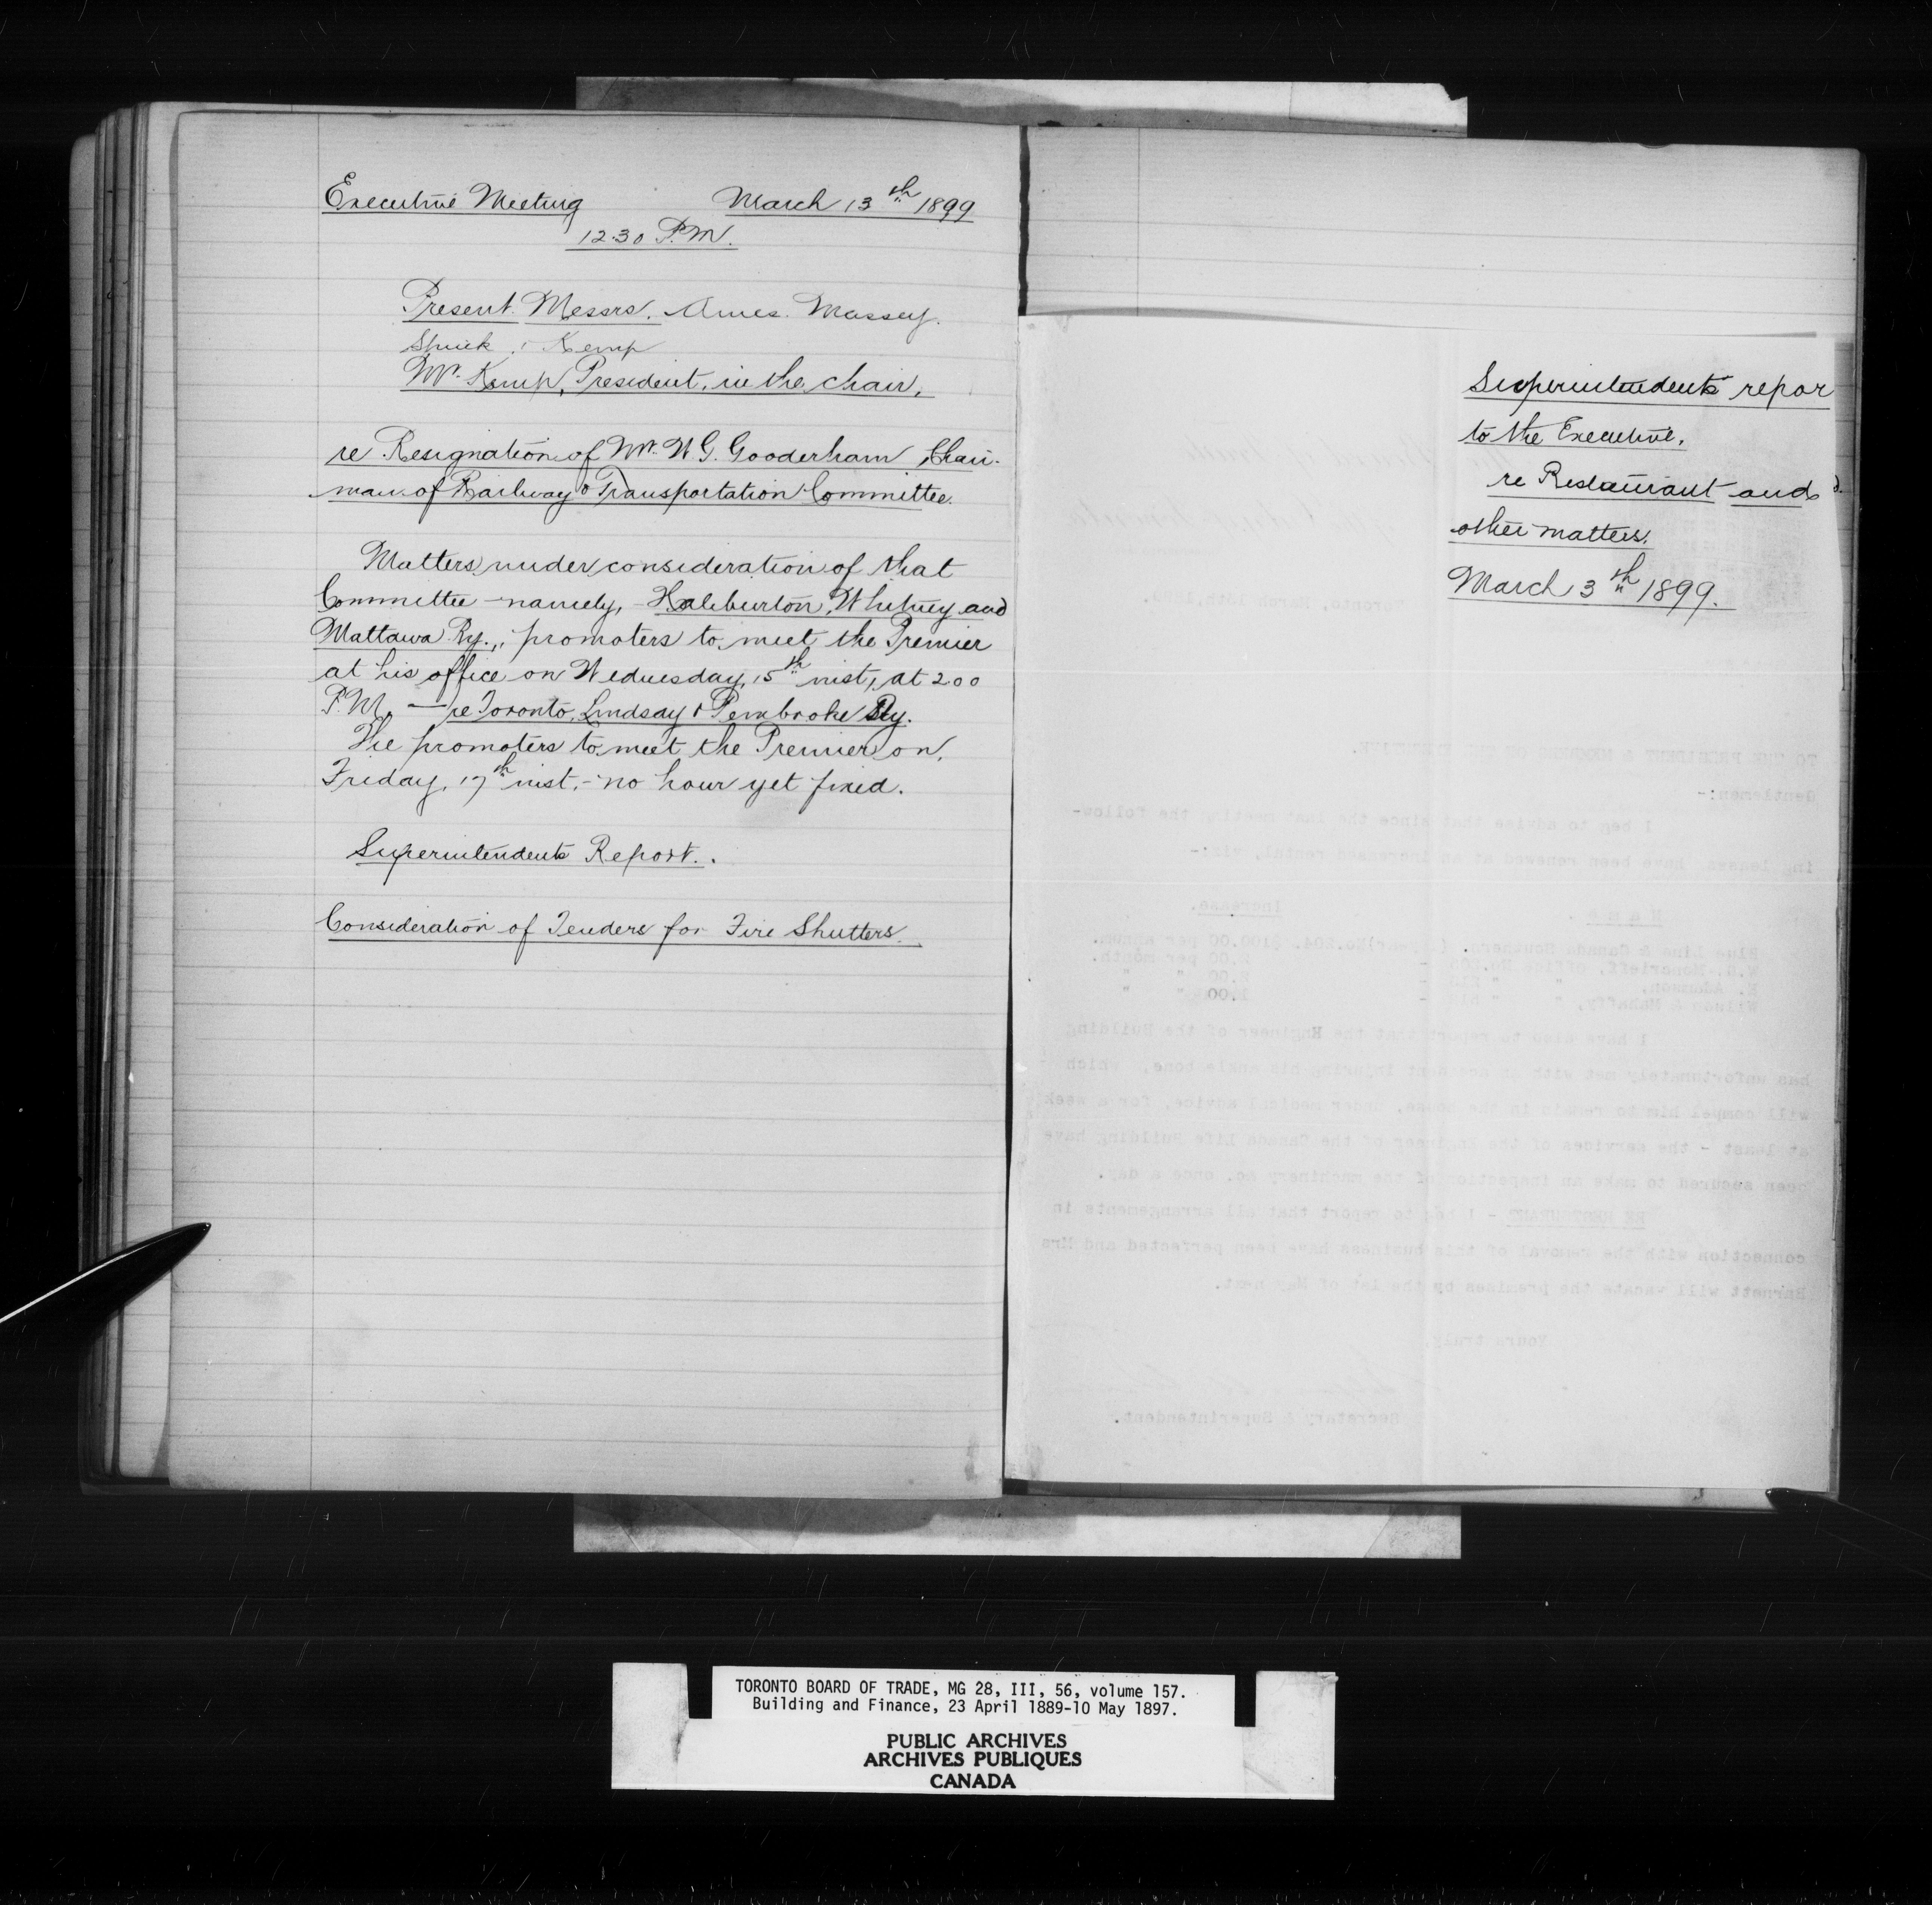 Executive Meeting March 13th 1899
12.30 P.M.
Present. Messrs. Ames. Massey.
Spink & Kemp
Mr. Kemp, President, in the chair.
re Resignation of Mr. W. G. Gooderham, Chair-
man of Railway & Transportation Committee.
Matters under consideration of that
Committee - namely, - Haliburton, Whitney and
Mattawa Ry., promoters to meet the Premier
at his office on Wednesday, 15th inst, at 2.00
P.M. — re Toronto, Lindsay & Pembroke Ry.
The promoters to meet the Premier on
Friday, 17th inst. - no hour yet fixed.
Superintendents Report.
Consideration of Tenders for Fire Shutters.
Superintendents repor
to the Executive.
re Restaurant and
other matters.
March 3th 1899.
Toronto, March 10th, 1899.
TO THE PRESIDENT &
Gentlemen:-
I beg to advise that since the last meeting the follow-
ing leases have been renewed at an increased rental, viz:-
Name. Increase.
Blue Line & Canada Southern. No.204. $100.00 per annum.
W.D. Moncrieff, Office No. 2.00 per month.
E. Adamson, " " 2.00 " "
Wilson & Mahaffy, " " 1.00 " "
I have also to report that the Engineer of the Building
has unfortunately met with an accident injuring his ankle bone, which
will compel him to remain in the house, under medical advice, for a week
at least - the services of the Engineer of the Canada Life Building have
been secured to make an inspection of the machinery &c. once a day.
RE RESTAURANT - I beg to report that all arrangements in
connection with the removal of this business have been perfected and Mrs
Burnett will vacate the premises by the 1st of May next.
Yours truly,
Secretary & Superintendent.
TORONTO BOARD OF TRADE, MG 28, III, 56, volume 157.
Building and Finance, 23 April 1889-10 May 1897.
PUBLIC ARCHIVES
ARCHIVES PUBLIQUES
CANADA